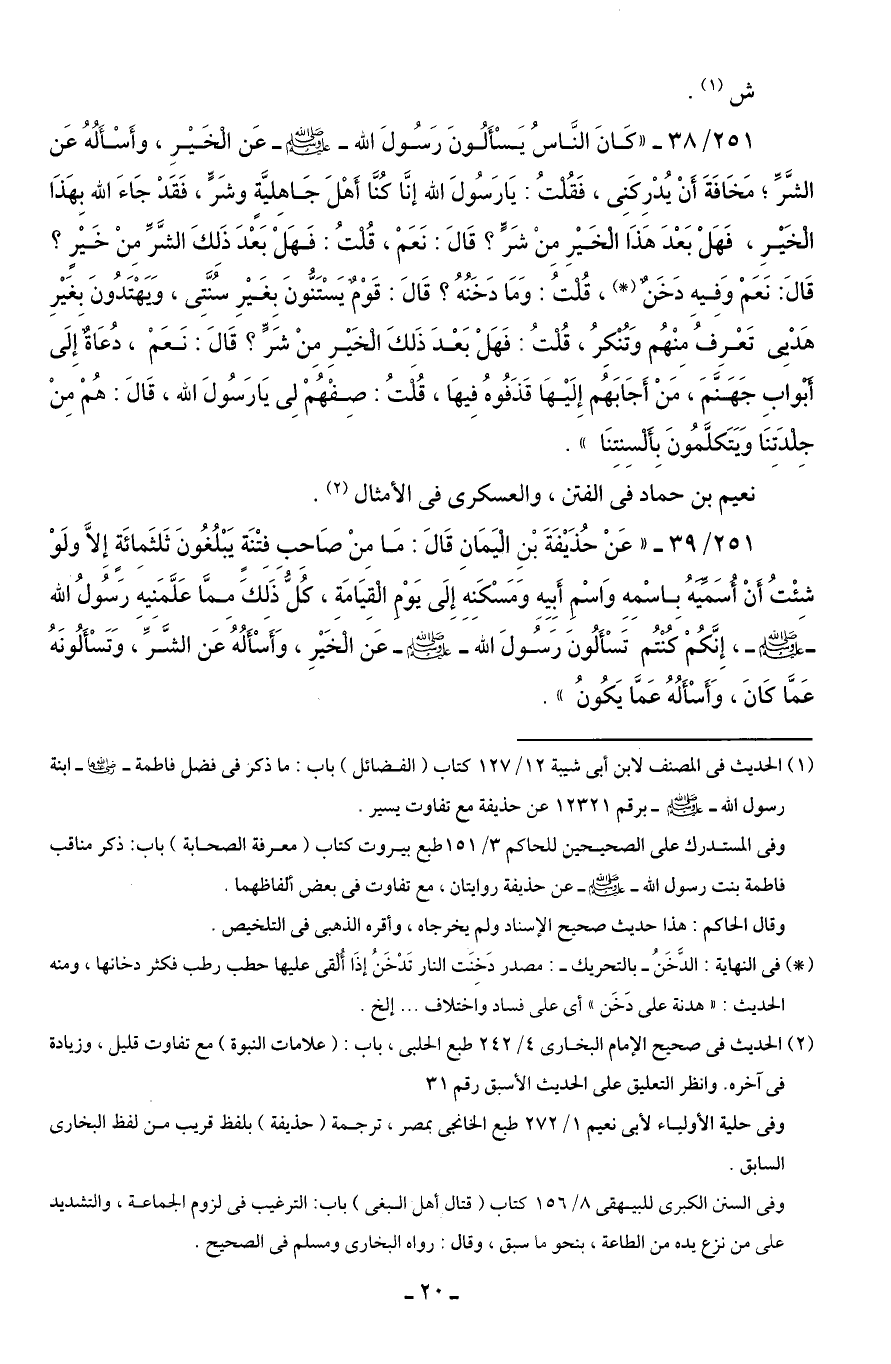 ش (١) .
٢٥١/ ٣٨ ـ «كَـانَ النَّاسُ يَسْأَلُـونَ رَسُـولَ الله ـ ﷺ ـ عَنِ الْخَـيْـرِ ، وأَسْـأَلُهُ عَنِ
الشَّرِّ ؛ مَخَافَةَ أَنْ يُدْرِكَنِى ، فَقُلْتُ : يَارَسُولَ الله إِنَّا كُنَّا أَهْلَ جَـاهِليَّةٍ وشَرٍّ ، فَقَدْ جَاءَ الله بِهَذَا
الْخَيْـرِ ، فَهَلْ بَعْدَ هَذَا الْخَـيْرِ مِنْ شَرٍّ ؟ قَالَ : نَعَمْ ، قُلْتُ : فَـهَلْ بَعْدَ ذَلِكَ الشَّرِّ مِنْ خَـيْرٍ ؟
قَالَ: نَعَمْ وَفِـيهِ دَخَنٌ (*) ، قُلْتُ : وَمَا دَخَنُهُ ؟ قَالَ : قَوْمٌ يَسْتَنُّونَ بِغَـيْرِ سُنَّتِى ، وَيَهْتَدُونَ بِغَيْرِ
هَدْيِى تَعْـرِفُ مِنْهُم وَتُنْكِرُ ، قُلْتُ : فَهَلْ بَعْـدَ ذَلِكَ الْخَيْـرِ مِنْ شَرٍّ ؟ قَالَ : نَـعَمْ ، دُعَاةٌ إِلَى
أَبْوابِ جَهَنَّمَ ، مَنْ أَجَابَهُم إِلَيْـهَا قَذَفُوهُ فِيهَا ، قُلْتُ : صِـفْهُمْ لِى يَارَسُولَ الله ، قَالَ : هُمْ مِنْ
جِلْدَتِنَا وَيَتَكَلَّمُونَ بِأَلْسِنَتِنَا » .
نعيم بن حماد فى الفتن ، والعسكرى فى الأمثال (٢) .
٢٥١/ ٣٩ ـ « عَنْ حُذَيْفَةَ بْنِ الْيَمَانِ قَالَ : مَـا مِنْ صَاحِبِ فِتْنَةٍ يَبْلُغُونَ ثَلثَمائَةٍ إِلاَّ ولَوْ
شِئْتُ أَنْ أُسَمِّيَهُ بِـاسْمِهِ وَاسْمِ أَبِيهِ وَمَسْكَنِهِ إِلَى يَوْمِ الْقِيَامَةِ ، كُلُّ ذَلِكَ مِـمَّا عَلَّمَنِيهِ رَسُولُ الله
ـ ﷺ ـ ، إِنَّكُمْ كُنْتُم تَسْأَلُونَ رَسُـولَ الله ـ ﷺ ـ عَنِ الْخَيْرِ ، وَأَسْأَلُهُ عَنِ الشَّـرِّ ، وَتَسْأَلُونَهُ
عَمَّا كَانَ ، وَأَسْأَلُهُ عَمَّا يَكُونُ » .
(١) الحديث فى المصنف لابن أبى شيبة ١٢/ ١٢٧ كتاب ( الفـضائل ) باب : ما ذكر فى فضل فاطمة ـ رضي الله عنها ـ ابنة
رسول الله ـ ﷺ ـ برقم ١٢٣٢١ عن حذيفة مع تفاوت يسير .
وفى المستـدرك على الصحيـحين للحاكم ٣/ ١٥١ طبع بيـروت كتاب ( معـرفة الصحـابة ) باب: ذكر مناقب
فاطمة بنت رسول الله ـ ﷺ ـ عن حذيفة روايتان ، مع تفاوت فى بعض ألفاظهما .
وقال الحاكم : هذا حديث صحيح الإسناد ولم يخرجاه ، وأقره الذهبى فى التلخيص .
(*) فى النهاية : الدَّخَنُ ـ بالتحريك ـ : مصدر دَخِنَت النار تَدْخَنُ إِذَا أُلْقى عليها حطب رطب فكثر دخانها ، ومنه
الحديث : « هدنة على دَخَن » أى على فساد واختلاف ... إلخ .
(٢) الحديث فى صحيح الإمام البخـارى ٤/ ٢٤٢ طبع الحلبى ، باب : ( علامات النبوة ) مع تفاوت قليل ، وزيادة
فى آخره. وانظر التعليق على الحديث الأسبق رقم ٣١
وفى حلية الأوليـاء لأبى نعيم ١/ ٢٧٢ طبع الخانجى بمصر ، ترجـمة ( حذيفة ) بلفظ قريب مـن لفظ البخارى
السابق .
وفى السنن الكبرى للبيـهقى ٨/ ١٥٦ كتاب ( قتال أهل الـبغى ) باب: الترغيب فى لزوم الجماعـة ، والتشديد
على من نزع يده من الطاعة ، بنحو ما سبق ، وقال : رواه البخارى ومسلم فى الصحيح .
ـ ٢٠ ـ